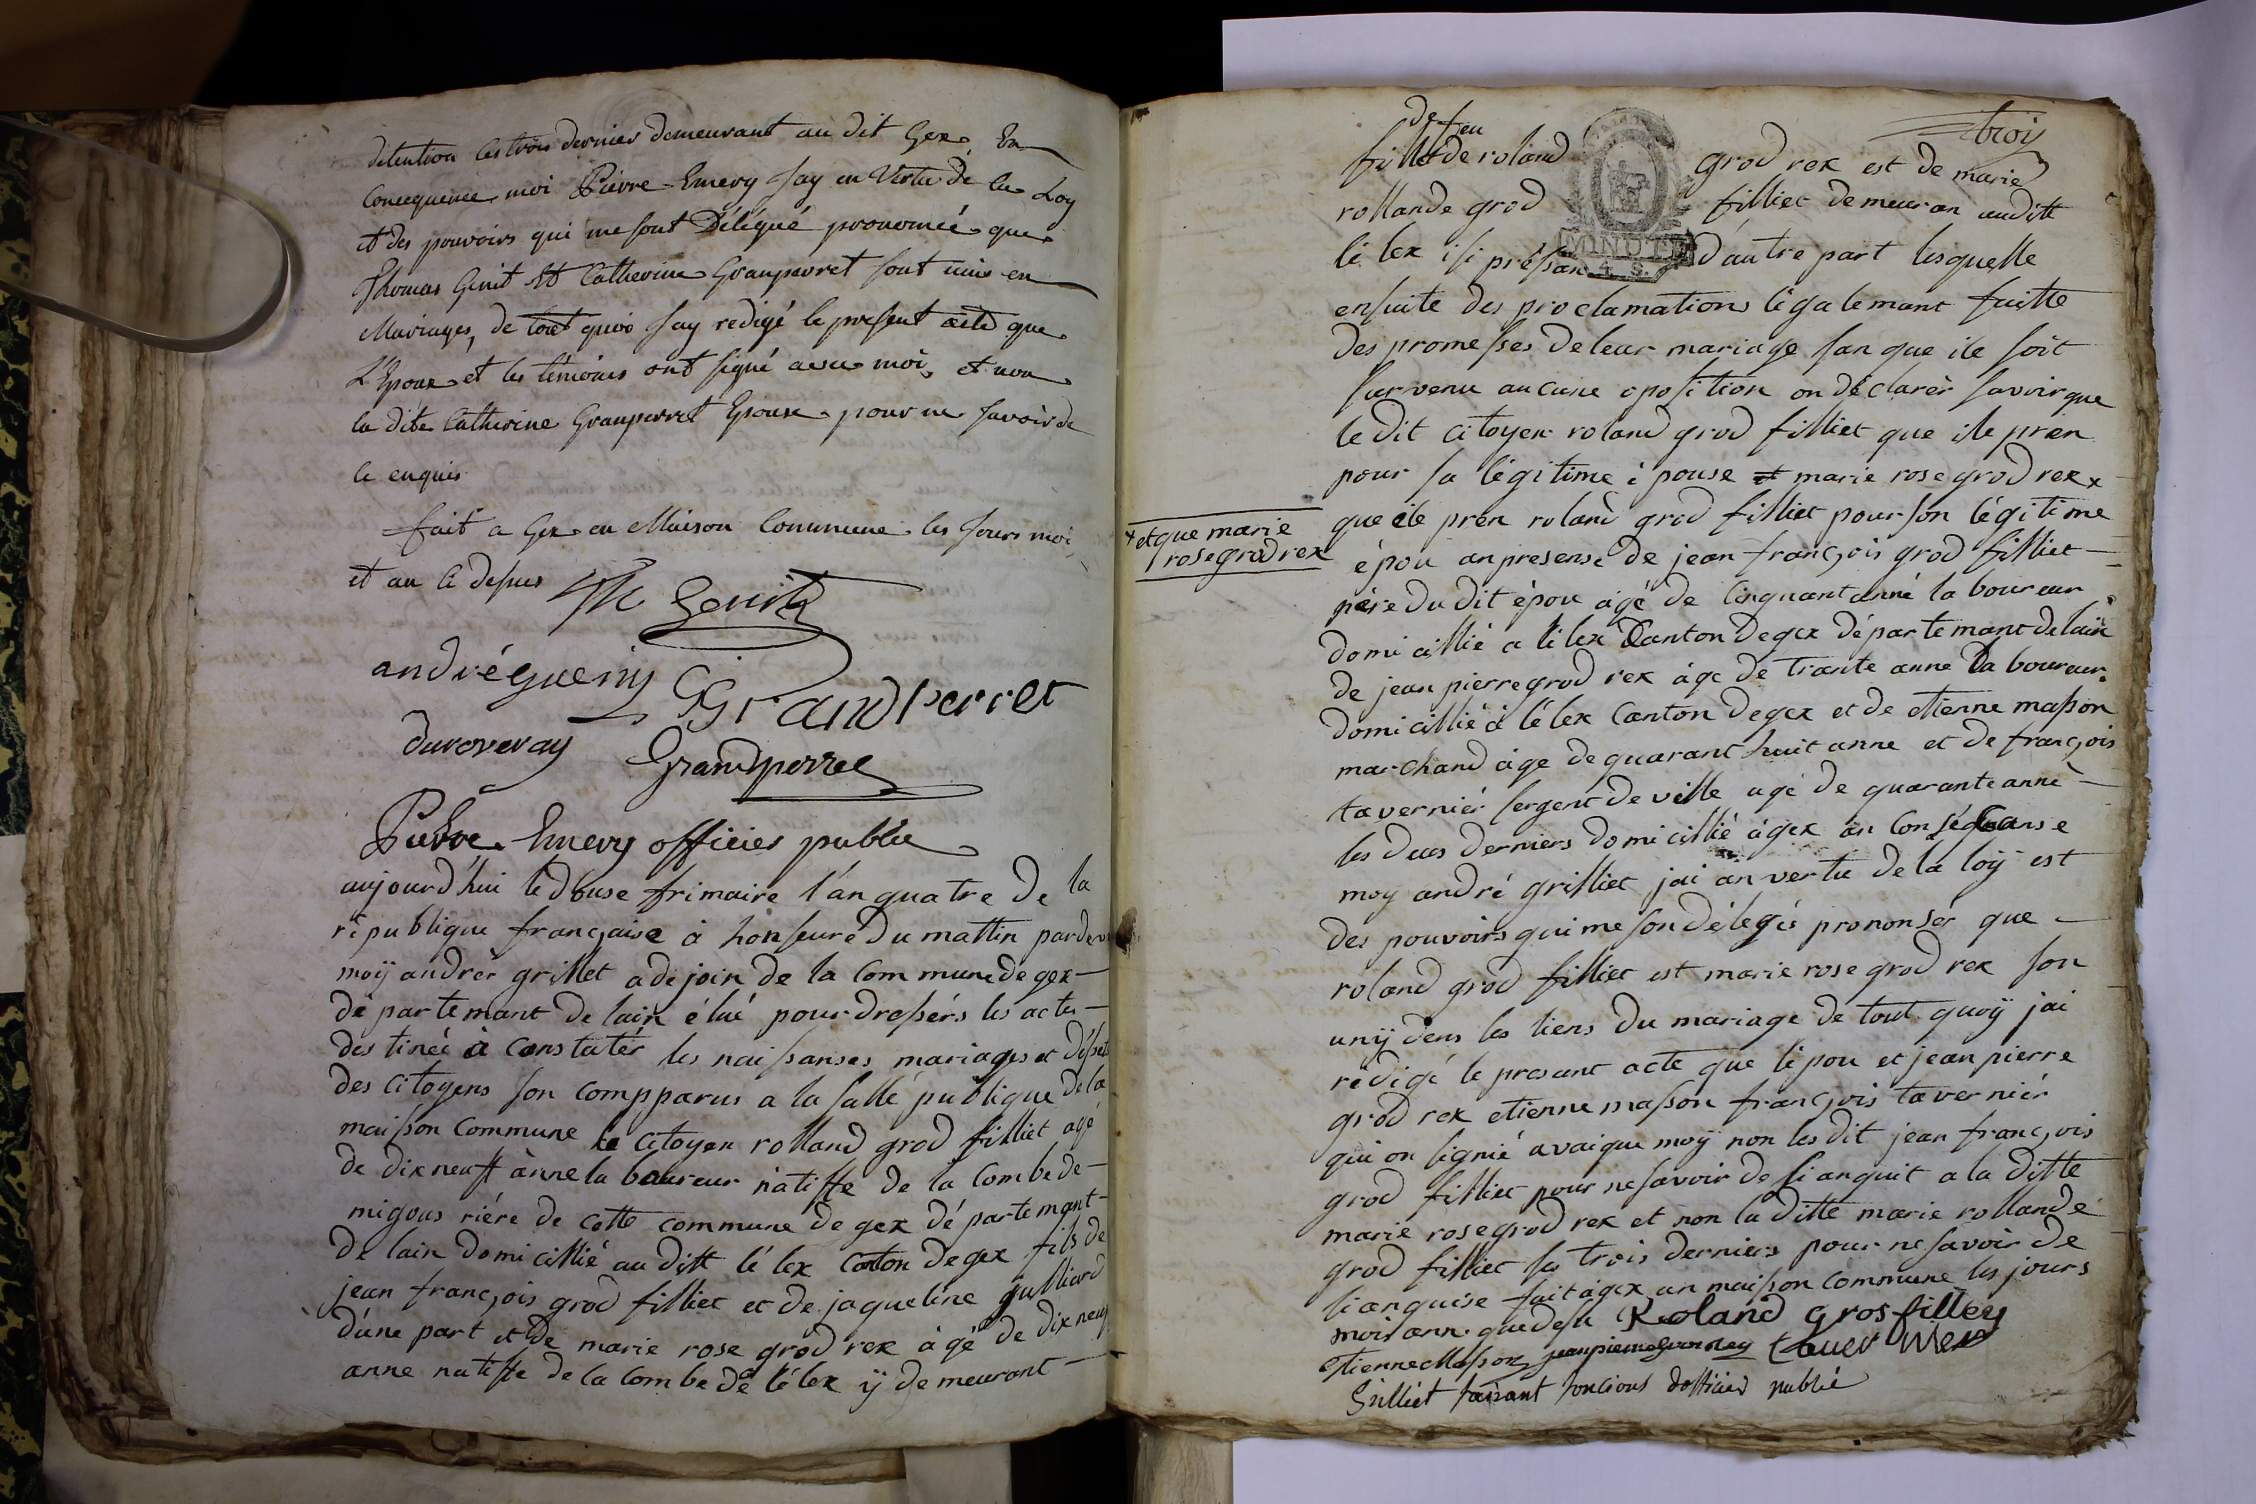 détention les trois dernier demeurant au dit Gex. En
Concequence moi Pierre Emery Jay en Vertu de la Loy
et des pouvoirs qui me sont Délégué prononcé que
Thomas Genit et Catherine Granperret sont unis en
Mariages, de tout quoi Jay redigé le present acte que
L'Epoux et les témoins ont signé avec moi, et non
la dite Catherine Granperret Epouse pour ne savoir de
ce enquis
fait a Gex en Maison Commune les jours moi
et an Ci desus
andré guenin
G Grandperret
duroveray
Grandperret
Pierre Emery officier public
aujourd'hui le douse frimaire l'an quatre de la
république française à honseure du mattin pardev
moÿ andrer grillet adejoin de la Commune de gex
dé partemant de lain élué pour dressérs les actes
destinéé à Constatér les naissanses mariages et déses
des Citoyens son compparus a la salle publique de la
maisson Commune le Citoyen rolland grod filliet agé
de dixneuft anne laboureur natiffe de la Combe de
migous riére de cette commune de gex dé partemant
de lain domicillié au ditt lé lex Canton de gex fils de
jean françois grod filliet et de jaqueline gulliard
d'une part et de marie rose grod rex àgé de dixneuf
anne natiffe de la Combe dé lélex ÿ demeurant
troij
de feu
fille de roland grod rex est de marie
rollande grod filliet demeuran audite
lé lex isi présan d'autre part lesquelle
MINUTE
4. S.
ensuite des proclamations légalemant faitte
des promesses de leur mariage san que ile soit
survenu aucune oposition on déclarér savoir que
le dit Citoyen roland grod filliet que ile pren
pour sa légitime épouse et marie rose grod rex x
x et que marie
rose grod rex
que ile pren roland grod filliet pour son légitime
épou anpresense de jean françois grod filliet
père du dit épou agé de Cinquant anné laboureur
domicillié a lélex Canton de gex département de lain
de jean pierre grod rex âge de trante anne laboureur
domicillié à lélex Canton de gex et de etienne masson
marchand âge de quarant huit anne et de françois
taverniér sergent de ville agé de quarante anné
les deus derniers domicillié à gex an Conséquanse
moy andré grilliet jai an vertu de la loÿ est
des pouvoirs qui me son délegés prononsér que
roland grod filliet est marie rose grod rex son
unÿ dens les liens du mariage de tout quoÿ jai
rédigé le presant acte que lépou et jean pierre
grod rex etienne masson françois taverniér
qui on signié avaique moÿ non les dit jean françois
grod filliet pour ne savoir de si anquit a la ditte
marie rose grod rex et non la ditte marie rollande
grod filliet les trois derniers pour ne savoir de
si anquise fait à gex an maisson Commune les jours
mois anne que desu Roland grosfilley
etienne Masson jean pierre taver nier
Grilliet faisant foncions dofficier publié